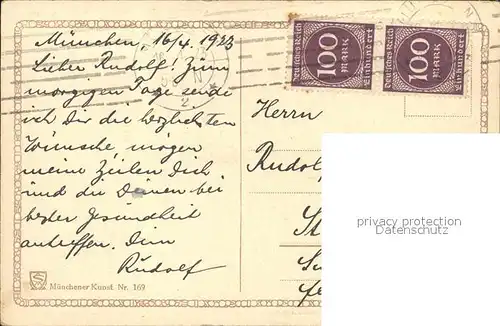 München, 16/4. 1923
Lieber Rudolf! Zum
morgigen Tage sende
ich Dir die herzlichsten
Wünsche, mögen
meine Zeilen Dich
und die Deinen bei
bester Gesundheit
antreffen. Dein
Rudolf
Münchener Kunst. Nr. 169
Deutsches Reich
100
MARK
Einhundert
Deutsches Reich
100
MARK
Einhundert
Herrn
Rudol
St
privacy protection
Datenschutz